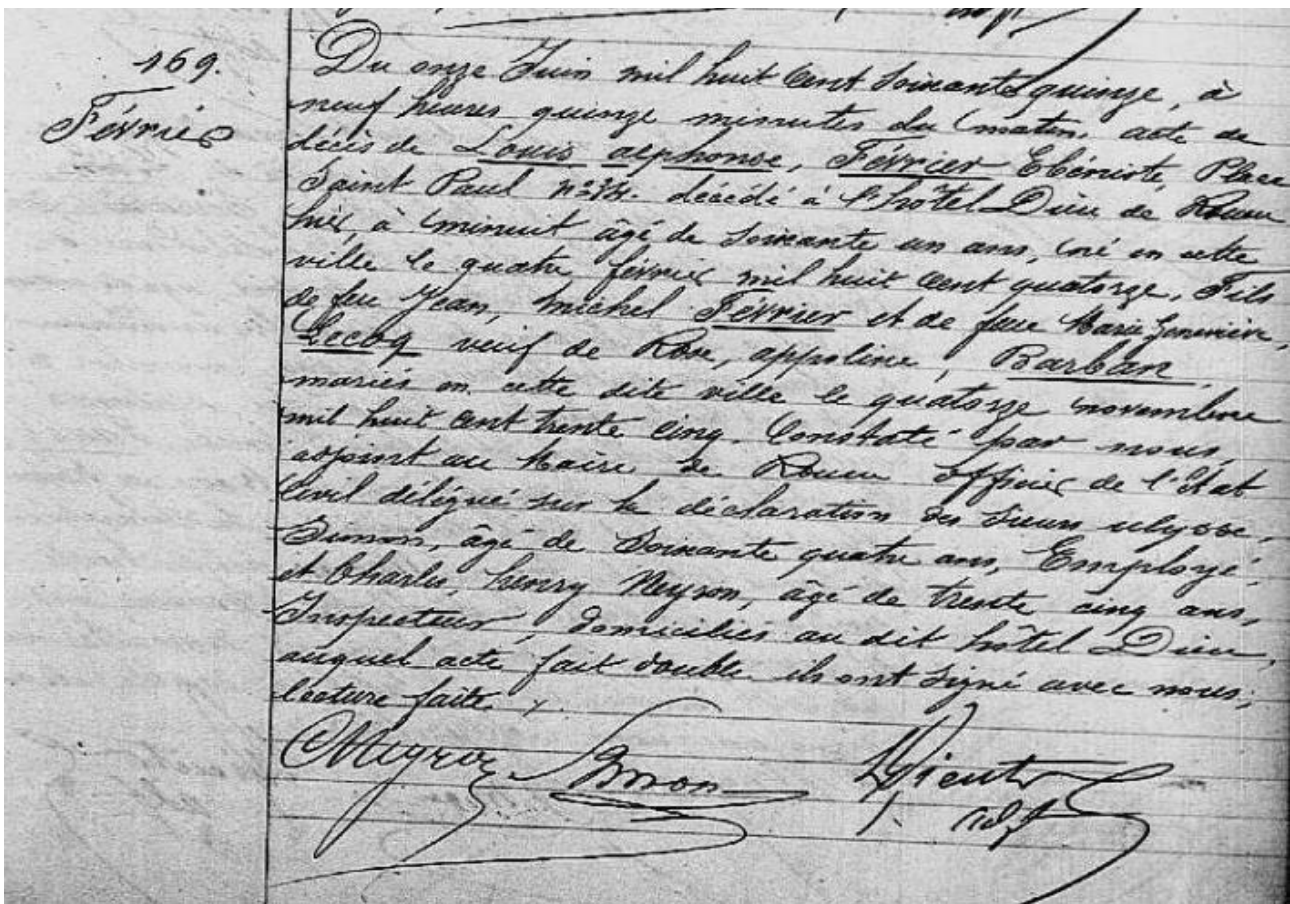 169.
Février
Du onze Juin mil huit cent soixante quinze, à
neuf heures quinze minutes du matin, acte de
décès de Louis alphonse, Février Ebéniste, Place
Saint Paul décédé à l'hôtel Dieu de Rouen
hier, à minuit âgé de soixante un ans, né en cette
ville le quatre février mil huit cent quatorze, Fils
de feu Jean, Michel Février et de feue Marie Geneviève,
Lecoq veuf de Rose, appoline, Barban
mariés en cette dite ville le quatorze novembre
mil huit cent trente cinq. Constaté par nous,
adjoint au Maire de Rouen officier de l'état
Civil délégué sur la déclaration des sieurs ulysse,
Simon, âgé de soixante quatre ans, Employé,
et Charles, henry Neyron, âgé de trente cinq ans,
Inspecteur, domiciliés au dit hôtel Dieu,
auquel acte fait double ils ont signé avec nous,
lecture faite,
Simon